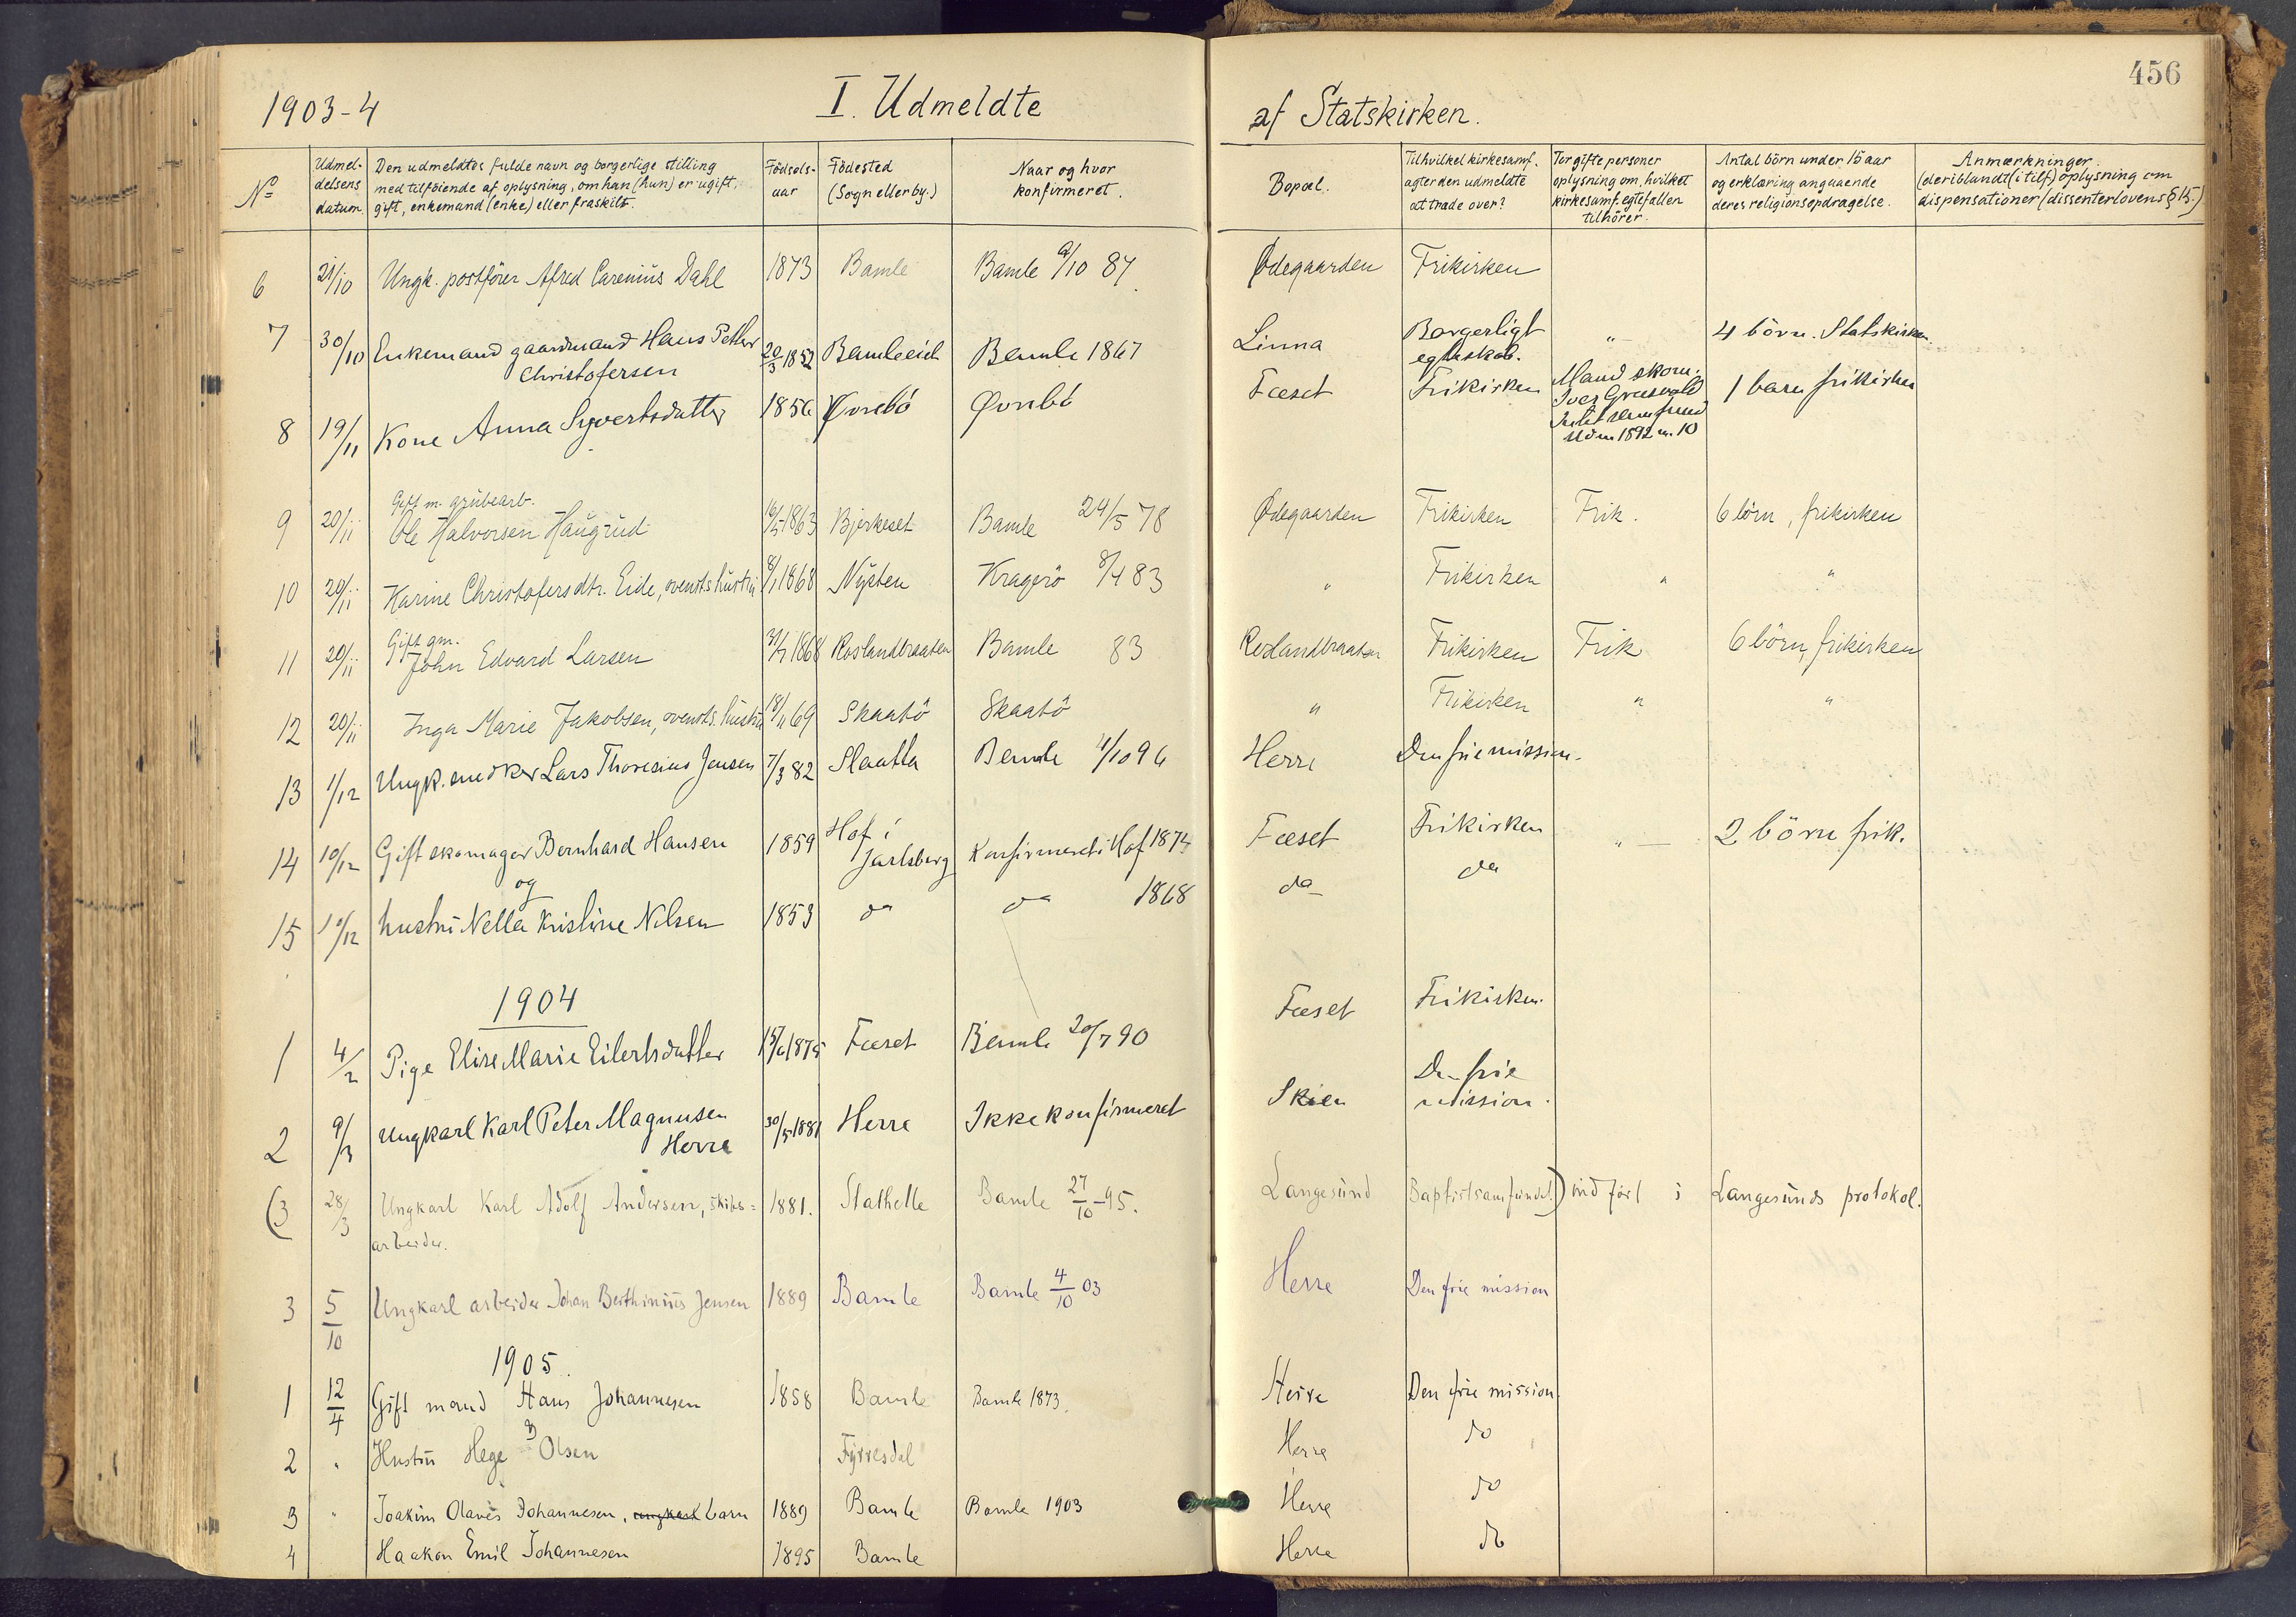 456
1903-4 I. Udmeldte af Statskirken.
No Udmeldelsens datum. Den udmeldtes fulde navn og borgerlige stilling med tilföiende af oplysning, om han (hun) er ugift, gift, enkemand (enke) eller fraskilt. Födselsaar Födested (Sogn eller by.) Naar og hvor konfirmeret. Bopæl. Til hvilket kirkesamf. agter den udmeldte at træde over? For gifte personer oplysning om, hvilket kirkesamf. egtefællen tilhörer. Antal börn under 15 aar og erklæring angaaende deres religionsopdragelse. Anmærkninger. (deriblandt (i tilf.) oplysning om dispensationer (dissenterlovens § 15.)
6 21/10 Ungk. postförer Alfred Carenius Dahl 1873 Bamle Bamle /10 87 Ødegaarden Frikirken
7 30/10 Enkemand gaardmand Hans Petter Christofersen 20/3 1852 Bamleeid Bamle 1867 Linna Borgerligt egteskab. " 4 börn. Statskirken
8 19/11 Kone Anna Syvertsdatter 1856 Øvrebö Øvrebö Fæset Frikirken Mand skom. Iver 1892 nr. 10 1 barn frikirken
9 20/11 Gift m. grubearb. Ole Halvorsen Haugrud 1863 Bjerkeset Bamle 24/5 78 Ødegaarden Frikirken Frik. 6 börn, frikirken
10 20/11 Karine Christofersdtr. Eide, ovenst. hustru 1868 Nysten Kragerö 83 " Frikirken " "
11 20/11 Gift gm. John Edvard Larsen 1868 Roslandbraaten Bamle 83 Roslandbraaten Frikirken Frik 6 börn, frikirken
12 20/11 Inga Marie Jakobsen, ovensts. hustru 69 Skaatö Skaatö " Frikirken " "
13 1/12 Ungk. snedker Lars Thoresius Jensen 7/3 82 Slaatta Bamle 4/10 96 Herre Den frie mission.
14 10/12 Gift skomager Bernhard Hansen 1859 Hof i Jarlsberg Konfirmeret i Hof 1874 Fæset Frikirken " 2 börn frik.
og
15 10/12 hustru Nella Kristine Nilsen 1853 do do 1868 do do
1904
1 4/2 Pige Elise Marie Eilertsdatter 1875 Fæset Bamle 20/7 90 Fæset Frikirken.
2 9/3 Ungkarl Karl Peter Magnusen Herre 30/5 1881 Herre Ikke konfirmeret Skien Den frie mission.
(3 28/3 Ungkarl Karl Adolf Andersen, skibs=arbeider. 1881. Stathelle Bamle 27/10 -95. Langesund Baptistsamfundet.) indfört i Langesunds protokol.
3 5/10 Ungkarl arbeider Johan Berthinius Jensen 1889 Bamle Bamle 4/10 03 Herre Den frie mission
1905.
1 12/4 Gift mand Hans Johannesen 1858 Bamle Bamle 1873. Herre Den frie mission.
2 " Hustru Hege Olsen Fyrresdal Herre do
3 " Joakim Olaves Johannesen, ungkarl barn 1889 Bamle Bamle 1903 Herre do
4 Haakon Emil Johannesen 1895 Bamle Herre do